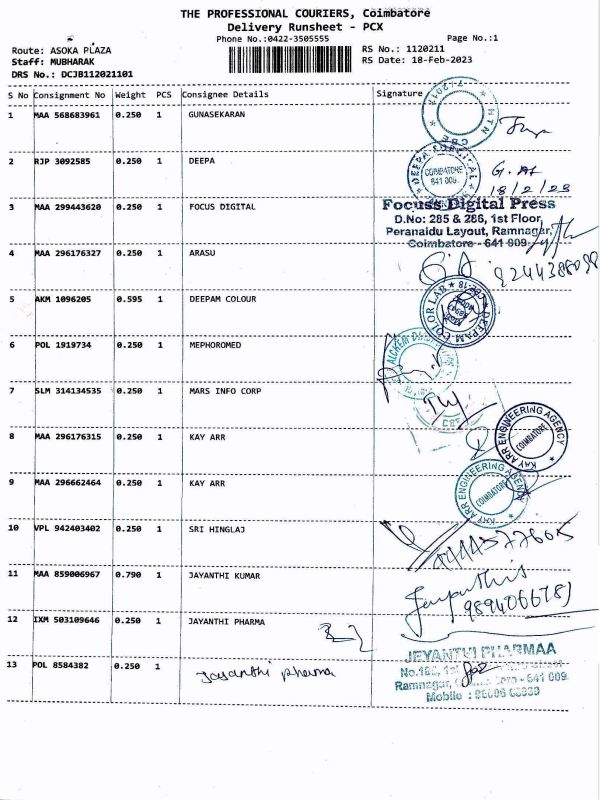 THE PROFESSIONAL COURIERS, Coimbatore
Delivery Runsheet - PCX
Phone No.:0422-3505555
Page No.:1
Route: ASOKA PLAZA
Staff: MUBHARAK
DRS No.: DCJB112021101
RS No.: 1120211
RS Date: 18-Feb-2023
S No Consignment No Weight PCS Consignee Details Signature
1 MAA 568683961 0.250 1 GUNASEKARAN
2 RJP 3092585 0.250 1 DEEPA
DEEPA
COIMBATORE
641 009.
G. A
18/2/23
3 MAA 299443620 0.250 1 FOCUS DIGITAL
Focuss Digital Press
D.No: 285 & 286, 1st Floor,
Peranaidu Layout, Ramnagar,
Coimbatore - 641 009.
4 MAA 296176327 0.250 1 ARASU
9244388098
5 AKM 1096205 0.595 1 DEEPAM COLOUR
DEEPAM COLOR LAB
CBE-18
6 POL 1919734 0.250 1 MEPHOROMED
7 SLM 314134535 0.250 1 MARS INFO CORP
8 MAA 296176315 0.250 1 KAY ARR
KAY ARR ENGINEERING AGENCY
COIMBATORE
9 MAA 296662464 0.250 1 KAY ARR
KAY ARR ENGINEERING AGENCY
COIMBATORE
10 VPL 942403402 0.250 1 SRI HINGLAJ
11 MAA 859006967 0.790 1 JAYANTHI KUMAR
Jayanthi
12 IXM 503109646 0.250 1 JAYANTHI PHARMA
JEYANTHI PHARMAA
Ramnagar, - 641 009.
Mobile :
13 POL 8584382 0.250 1 Jayanthi pharma